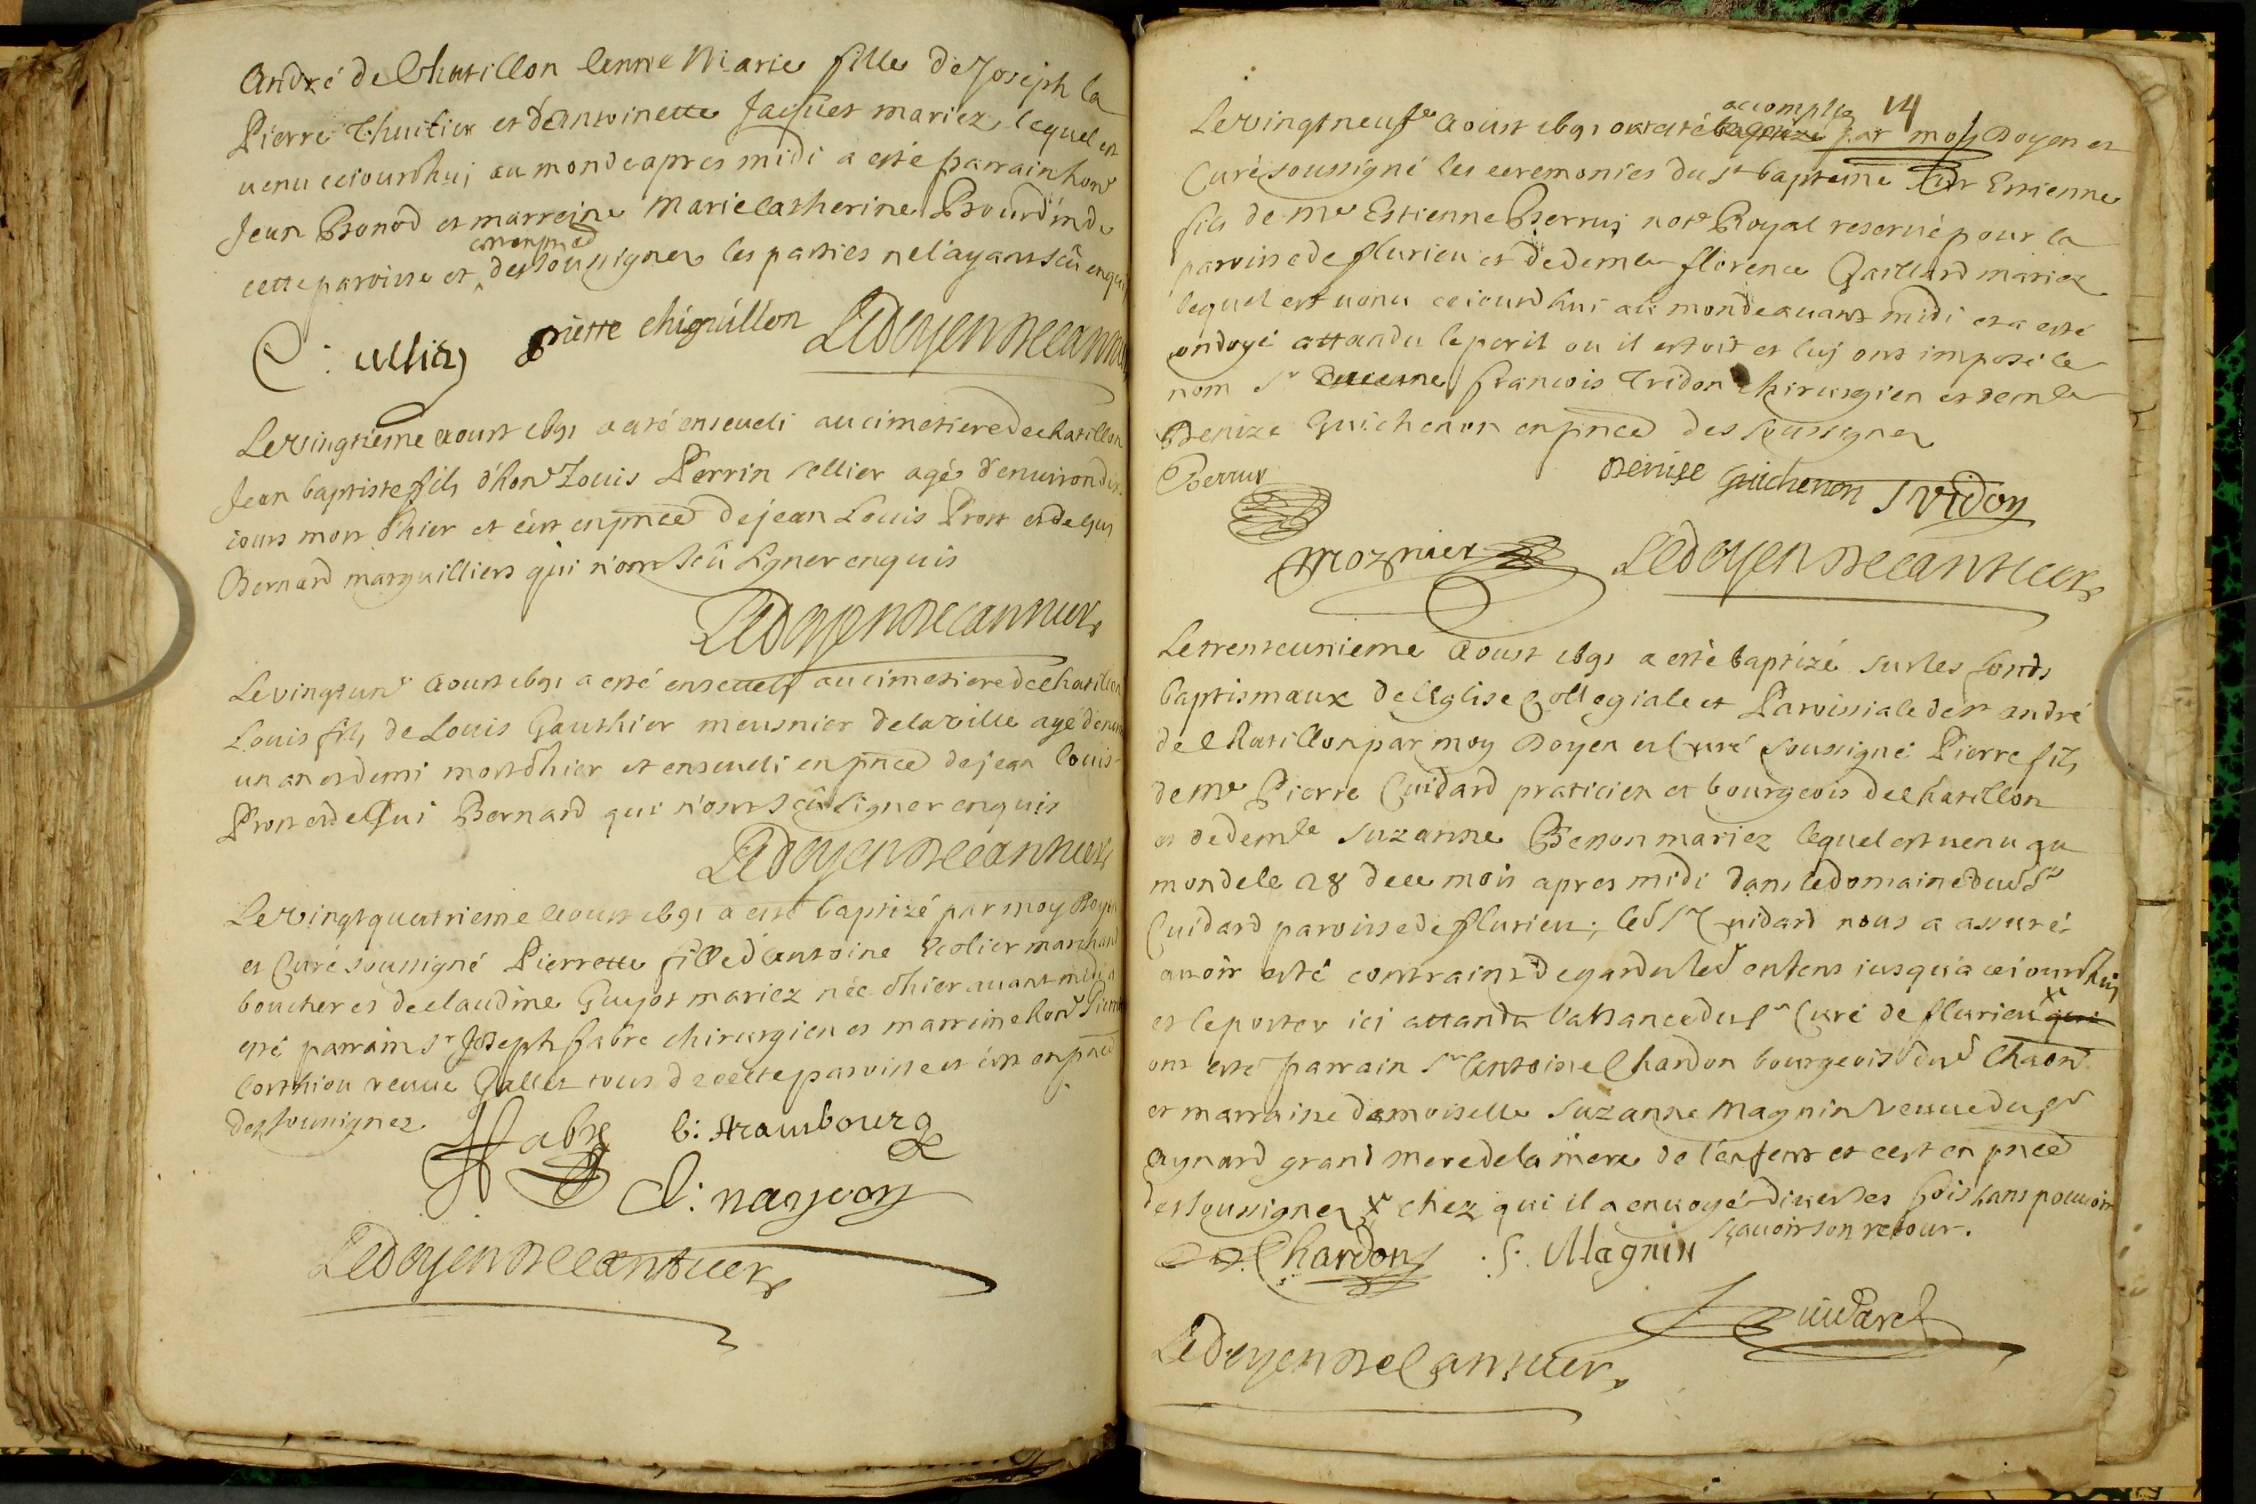 André de Chatillon lenne Marie fille de Joseph la
Pierre Thuilier et d'Antoinette Jaquet mariez lequel est
venu cejourdhuj au monde apres midi a esté parrain hon^e
Jean Bonod et marreine Marie Catherine Bourdin de
cette paroisse et en pnced des soussignez les parties ne l'ayant sçû enquis
pierre chiguillon Le doyen Decannier
Le vingtieme aoust 1691 a esté enseveli au cimetiere de chatillon
Jean baptiste fils d'hon^e Louis Perrin sellier agé d'environ dix
jours mort d'hier et c'est en pnced de jean Louis Prost et de Guy
Bernard marguilliers qui n'ont sçû signer enquis
Le doyen Decannier
Le vingt un^e aoust 1691 a esté enseveli au cimetiere de chatillon
Louis fils de Louis Gauthier meusnier de la ville agé d'environ
un an et demi mort d'hier et enseveli en pnced de jean Louis
Prost et de Gui Bernard qui n'ont sçû signer enquis
Le doyen Decannier
Le vingt quatrieme aoust 1691 a esté baptizé par moy Doyen
et Curé soussigné Pierrette fille d'antoine Ecolier marchand
boucher et de claudine Guyot mariez née d'hier avant midi a
esté parrain s^r Joseph fabre chirurgien et marreine hon^e Pierrette
Corthiou veuve Gallet tous de cette paroisse et c'est en pnced
des soussignez
J fabre C: Arambourg
Le doyen Decannier
14
Le vingt neuf^e aoust 1691 ont esté baptizé accomplies par moy Doyen et
Curé soussigné les ceremonies du s^t baptesme sur Estienne
fils de m^e Estienne Perruj not^e Royal reservé pour la
paroisse de flurieu et de dem^lle florence Gaillard mariez
lequel est venu cejourdhui au monde avant midi et a esté
ondoyé attandu le peril ou il estoit et luj ont imposé le
nom s^r francois Tridon chirurgien et dem^lle
Denize Guichenon en pnced des soussignez
Perruy
Denise Guichenon Tridon
Moznier Le doyen Decannier
Le trente unieme Aoust 1691 a esté baptizé sur les fonds
baptismaux de l'Eglise Collegiale et Parroissiale de s^t andré
de Chatillon par moy Doyen et Curé soussigné Pierre fils
de m^e Pierre Cuidard praticien et bourgeois de chatillon
et de dem^lle suzanne Benon mariez lequel est venu au
monde le 28 de ce mois apres midi dans le domaine dud s^r
Cuidard paroisse de flurieu; led s^r Cuidard nous a assuré
avoir esté contraint de garder led enfent jusqu'a cejourdhuij
et le porter ici attandu l'absance du s^r Curé de flurieu x qui
ont esté parrain s^r Antoine Chardon bourgeois dud Chaon
et marraine damoiselle suzanne Magnin veuve du s^r
Aynard grand mere de la mere de l'enfent et c'est en pnced
des soussignez x chez qui il a envoyé diverses fois sans pouvoir
sçavoir son retour.
Chardon S. Magnin
Cuidard
Le doyen Decannier